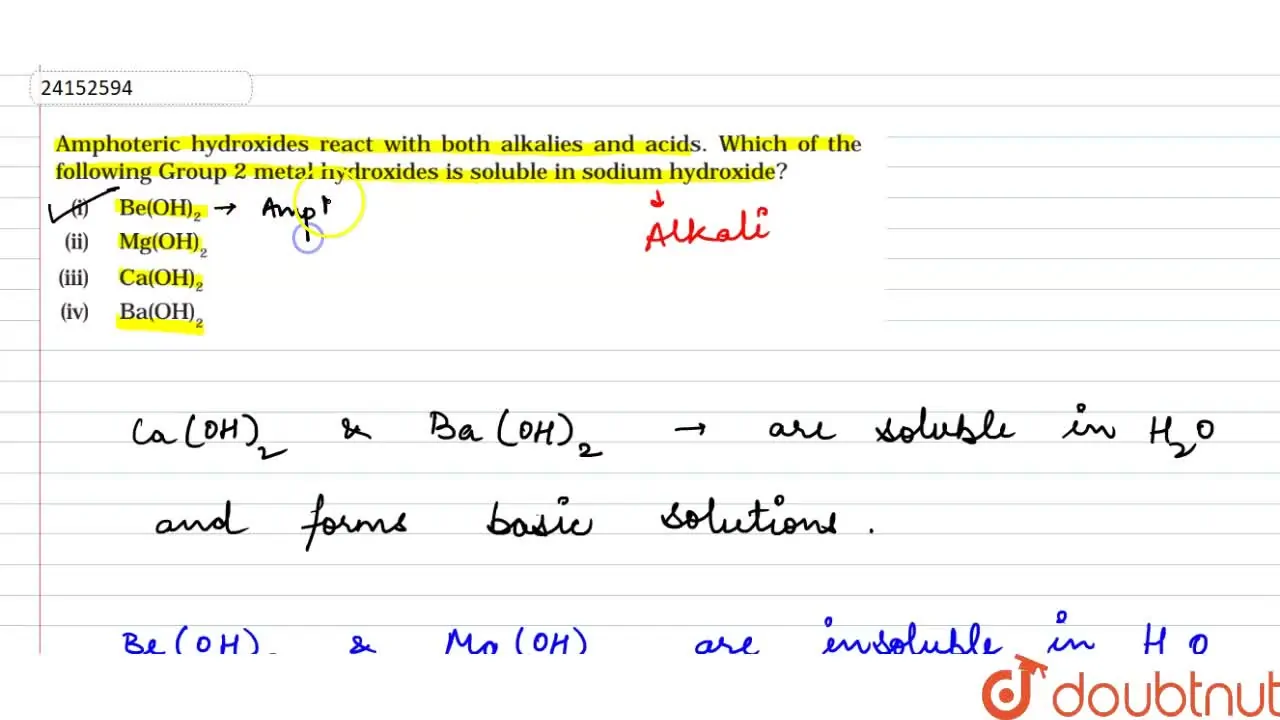 24152594
Amphoteric hydroxides react with both alkalies and acids. Which of the
following Group 2 metal hydroxides is soluble in sodium hydroxide?
(i) Be(OH)₂ → Amp
(ii) Mg(OH)₂
Alkali
(iii) Ca(OH)₂
(iv) Ba(OH)₂
Ca(OH)₂ & Ba(OH)₂ → are soluble in H₂O
and forms basic solutions.
Be(OH) & Mg(OH) are insoluble in H O
doubtnut